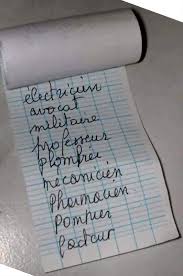 électricien
avocat
militaire
professeur
plombier
mécanicien
Pharmacien
Pompier
facteur